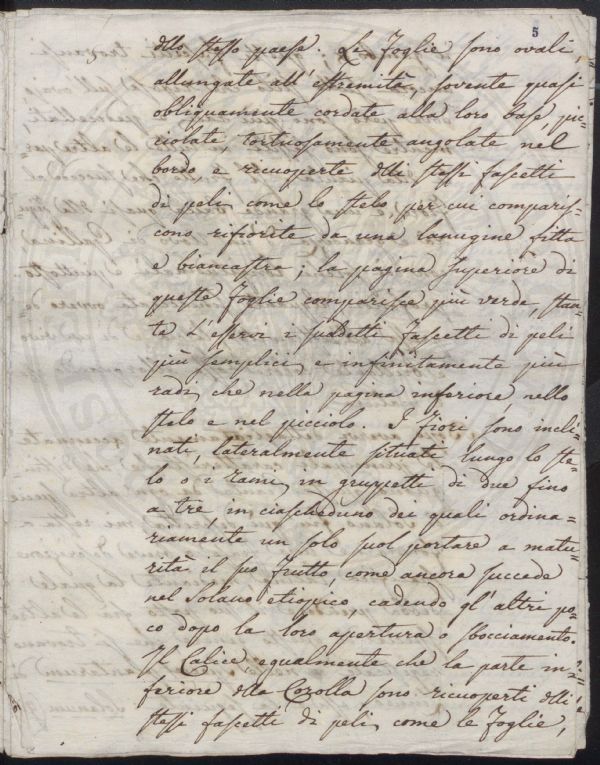 5
dllo stesso paese. Le foglie sono ovali
allungate all'estremità, sovente quasi
obliquamente cordate alla loro base, pic=
ciolate, tortuosamente angolate nel
bordo, e ricuoperte dlli stessi fascetti
di peli come lo stelo per cui comparis=
cono rifiorite da una lanugine fitta
e biancastra; la pagina superiore di
queste foglie comparisce più verde, stan=
te l'esservi i suddetti fascetti di peli
più semplici, e infinitamente più
radi, che nella pagina inferiore, nello
stelo e nel picciolo. I fiori sono incli=
nati, lateralmente situati lungo lo ste=
lo o i rami, in gruppetti di due fino
a tre, in ciascheduno dei quali ordina=
riamente un solo suol portare a matu=
rità il suo frutto, come ancora succede
nel Solano etiopico cadendo gl'altri po=
co dopo la loro apertura o sbocciamento.
Il Calice egualmente che la parte in=
feriore dlla Corolla sono ricuoperti dlli
stessi fascetti di peli, come le foglie,